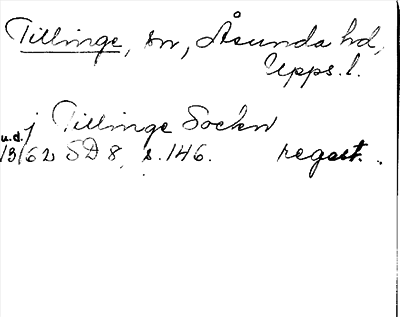 Tillinge, sn, Åsunda hd,
Upps. l.
j Tillinge Sockn
u.d.
1362 SD 8, s. 146. regest.